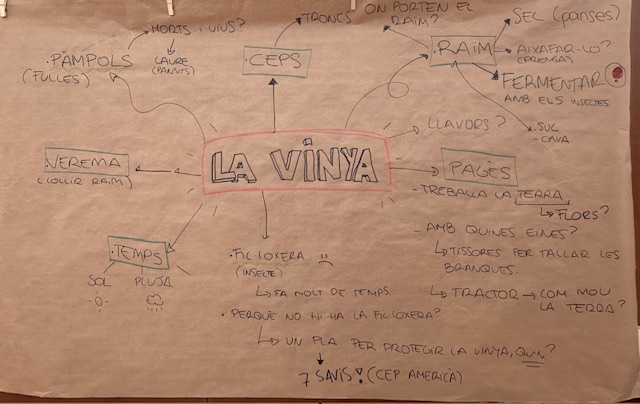 HORTS i VIUS?
·PÀMPOLS
(FULLES)
LAURE
(PANSITS)
TRONCS
CEPS
ON PORTEN EL
RAÏM?
·RAÏM
SEC (panses)
AIXAFAR-LO?
(PRENSA)
FERMENTAR
AMB ELS INSECTES
.SUC
-CAVA
LLAVORS?
LA VINYA
VEREMA
(COLLIR RAÏM)
PAGÈS
-TREBALLA LA TERRA
FLORS?
- AMB QUINES EINES?
TISSORES PER TALLAR LES
BRANQUES.
TRACTOR → COM MOU
LA TERRA?
·TEMPS
SOL
PLUJA
·FIC·LOXERA
(INSECTE)
FA MOLT DE TEMPS.
·PERQUÈ NO HI HA LA FIC·LOXERA?
UN PLA PER PROTEGIR LA VINYA, QUIN?
7 SAVIS! (CEP AMERICÀ)